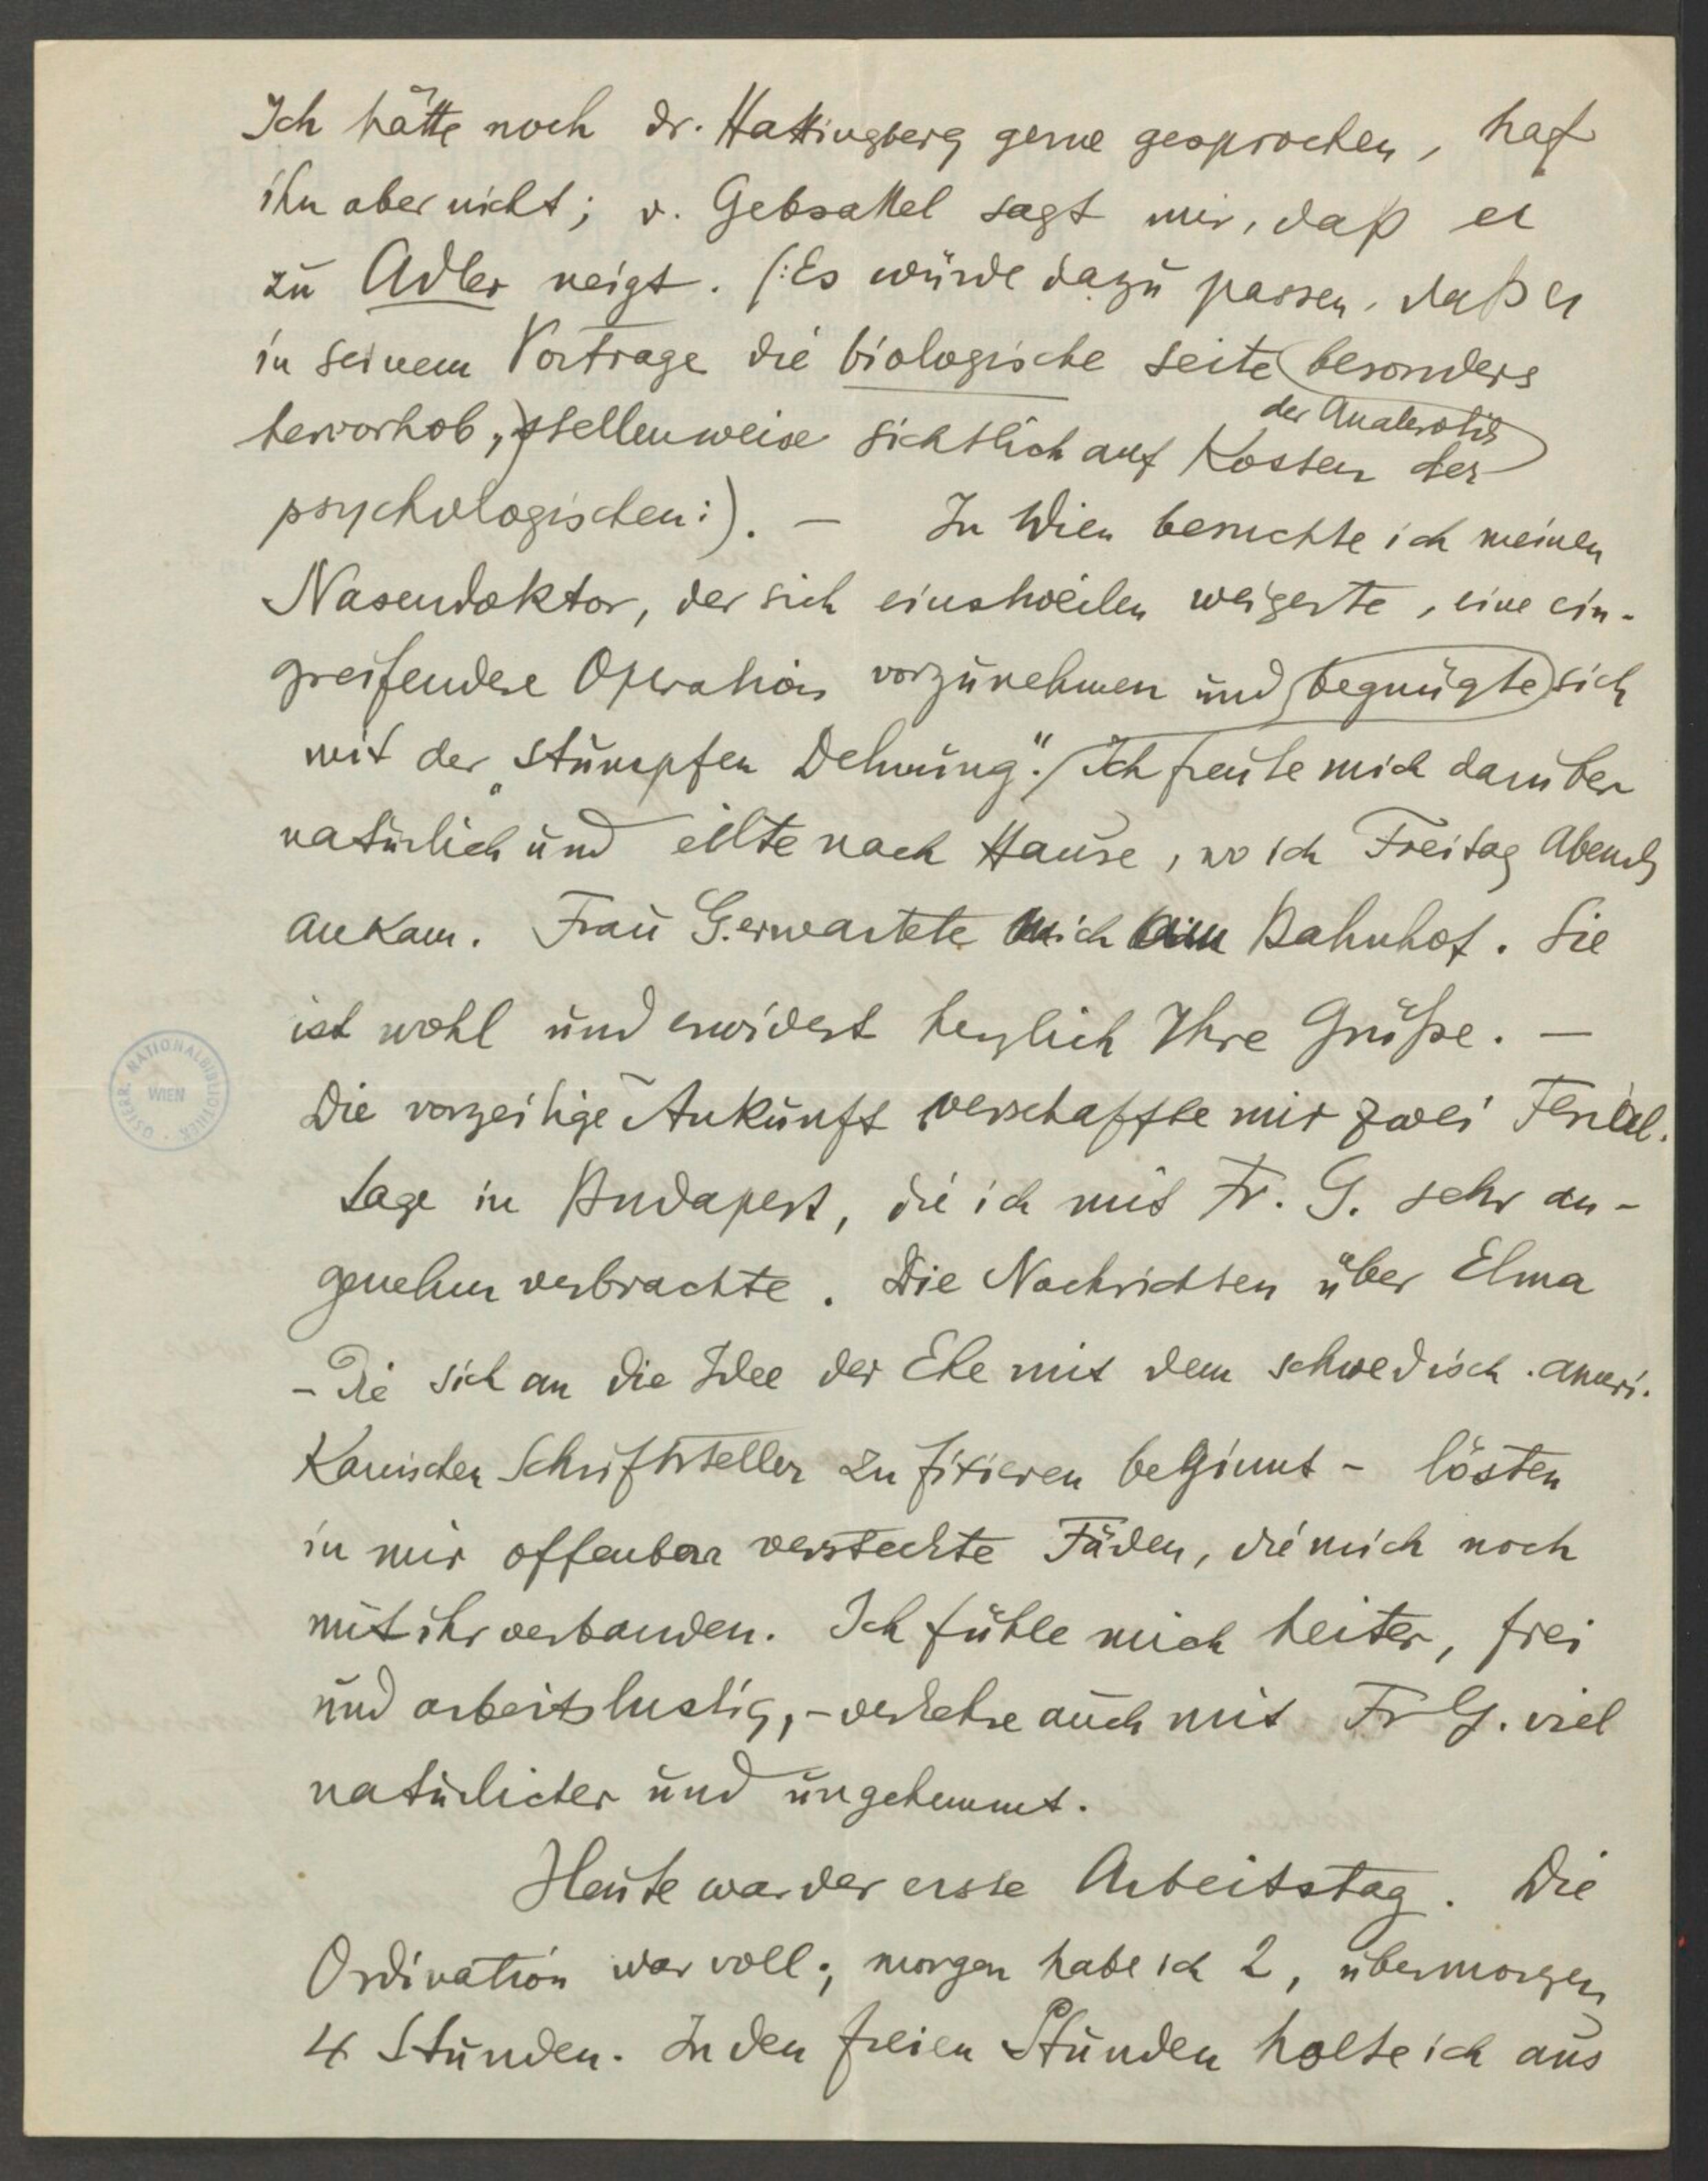 Ich hätte noch Dr. Hattingberg gerne gesprochen, traf
ihn aber nicht; v. Gebsattel sagt mir, daß er
zu Adler neigt. (:Es würde dazu passen, daß er
in seinem Vortrage die biologische Seite besonders
der Analerotik
hervorhob, stellenweise sichtlich auf Kosten der
psychologischen:). — In Wien besuchte ich meinen
Nasendoktor, der sich einstweilen weigerte, eine ein-
greifendere Operation vorzunehmen und begnügte sich
mit der „stumpfen Dehnung". Ich freute mich darüber
natürlich und eilte nach Hause, wo ich Freitag Abends
ankam. Frau G. erwartete mich am Bahnhof. Sie
ist wohl und erwidert herzlich Ihre Grüße. —
Die vorzeitige Ankunft verschaffte mir zwei Ferial-
tage in Budapest, die ich mit Fr. G. sehr an-
genehm verbrachte. Die Nachrichten über Elma
- die sich an die Idee der Ehe mit dem schwedisch-ameri-
kanischen Schriftsteller zu fixieren beginnt - lösten
in mir offenbar versteckte Fäden, die mich noch
mit ihr verbanden. Ich fühle mich heiter, frei
und arbeitslustig, - verkehre auch mit Fr G. viel
natürlicher und ungehemmt.
Heute war der erste Arbeitstag. Die
Ordination war voll; morgen habe ich 2, übermorgen
4 Stunden. In den freien Stunden holte ich aus
ÖSTERR. NATIONALBIBLIOTHEK
WIEN